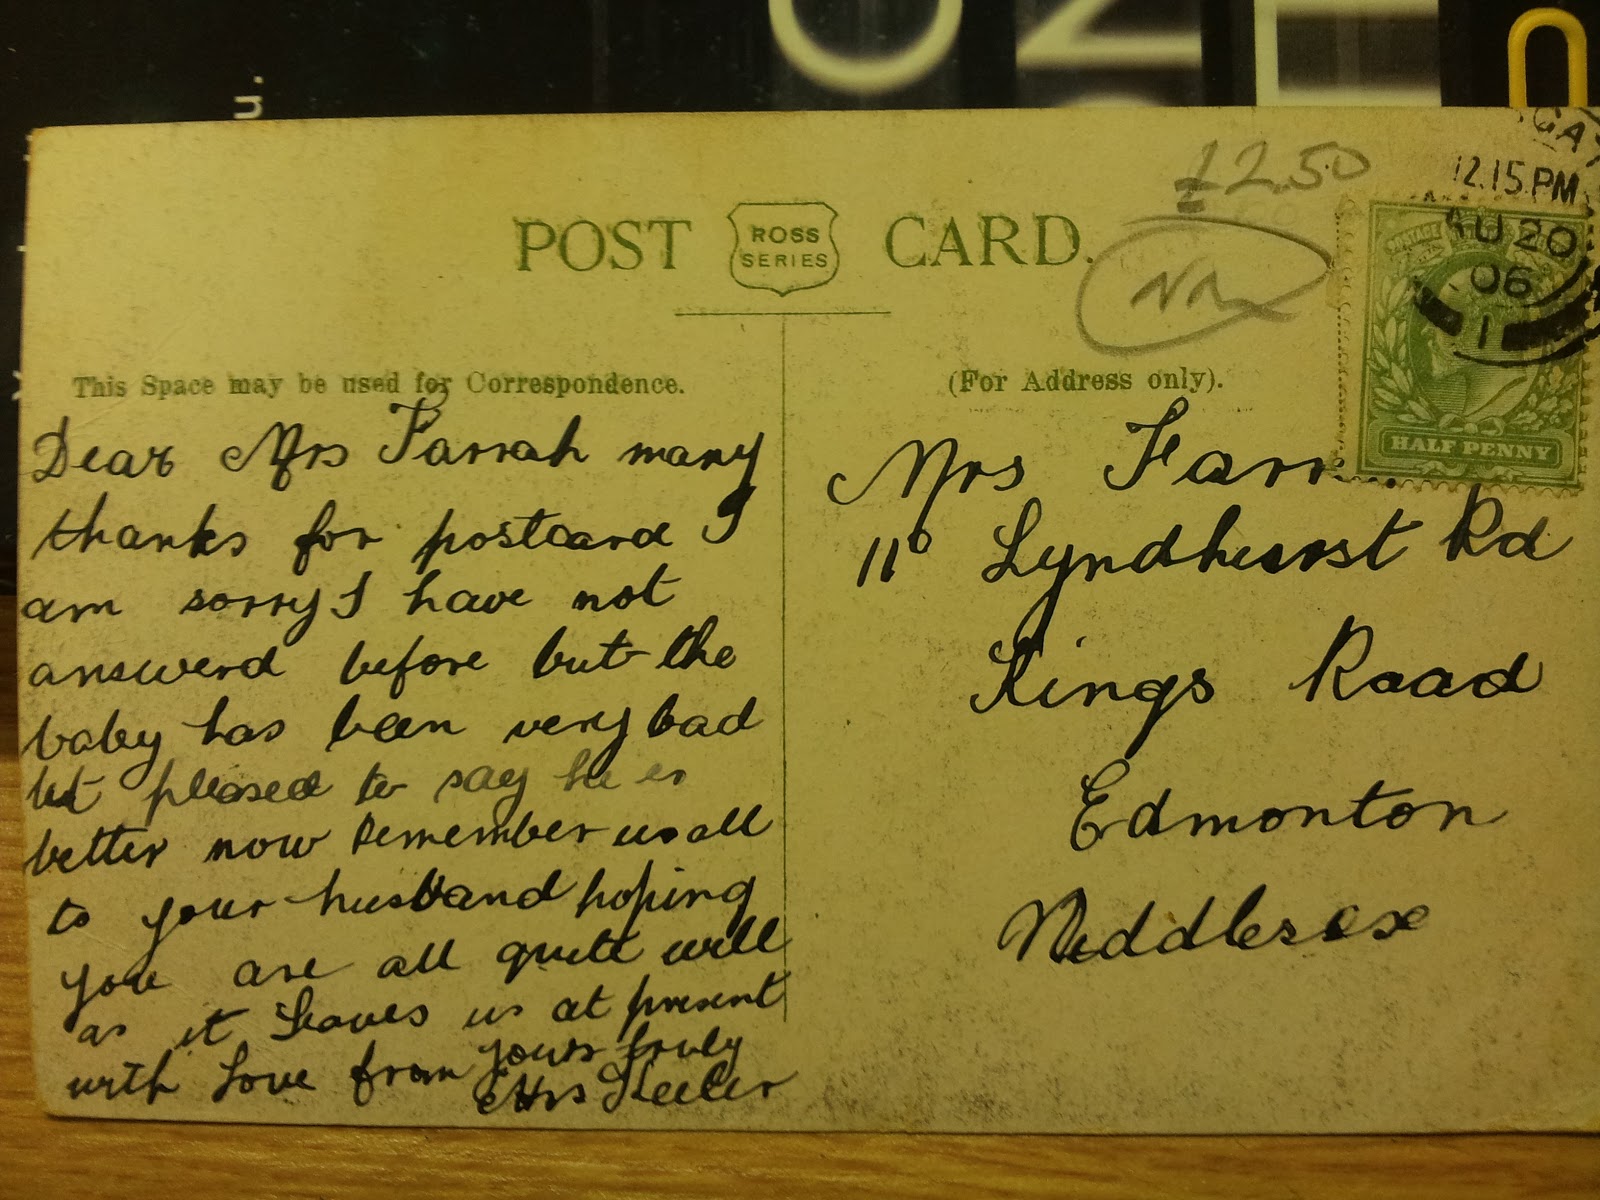 u.
£2.50
GA
12.15.PM
AU 20
06
1
POST ROSS SERIES CARD.
HALF PENNY
This Space may be used for Correspondence.
(For Address only).
Dear Mrs Farrah many
thanks for postcard I
am sorry I have not
answerd before but the
baby has been very bad
but pleased to say he is
better now Remember us all
to your husband hoping
you are all quite well
as it leaves us at present
with Love from yours truly
Mrs Keeler
Mrs Farr
110 Lyndhurst Rd
Kings Road
Edmonton
Middlesex